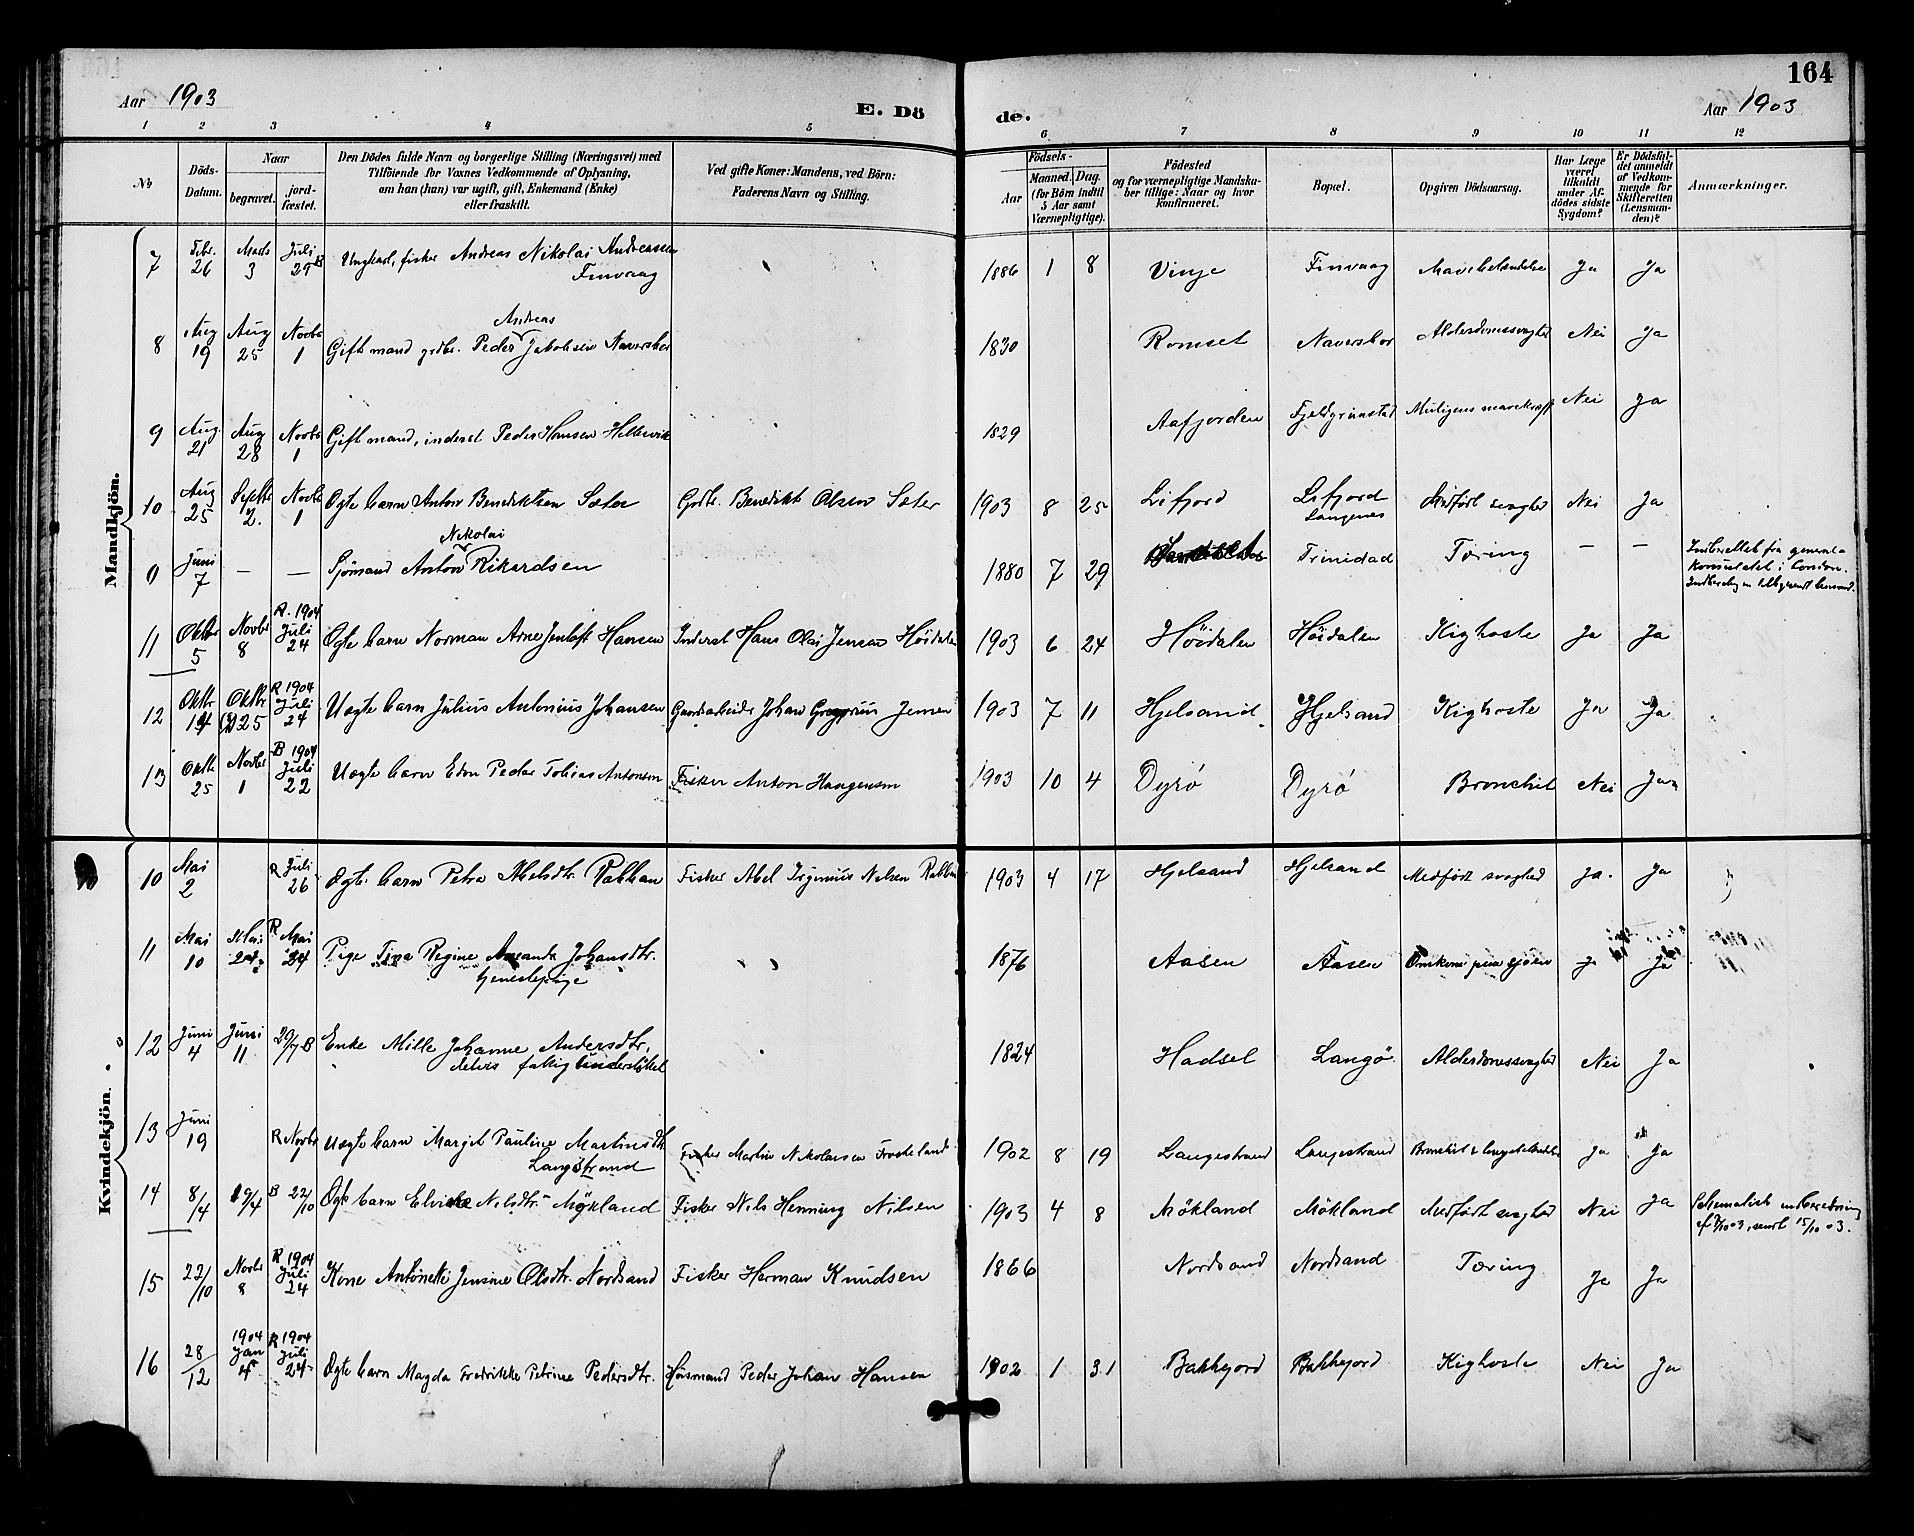 164
Aar 1903
E. Dö
de.
Aar 1903
1 2 3 4 5 6 7 8 9 10 11 12
No
Döds-Datum.
Naar
begravet.
jordfæstet.
Den Dödes fulde Navn og borgerlige Stilling (Næringsvei) med
Tilföiende for Voxnes Vedkommende af Oplysning,
om han (hun) var ugift, gift, Enkemand (Enke)
eller fraskilt.
Ved gifte Koner: Mandens, ved Börn:
Faderens Navn og Stilling.
Födsels-
Aar
Maaned. Dag.
(for Börn indtil
5 Aar samt
Værnepligtige).
Födested
og for værnepligtige Mandskaber tillige: Naar og hvor
konfirmeret.
Bopæl.
Opgiven Dödsaarsag.
Har Læge
været
tilkaldt
under Afdödes sidste
Sygdom?
Er Dödsfaldet anmeldt
af Vedkommende for
Skifteretten
(Lensmanden)?
Anmærkninger.
Mandkjön.
7 Febr. 26 Marts 3 Juli 29 B Ungkarl, fisker Andreas Nikolai Andreassen Finvaag 1886 1 8 Vinje Finvaag Ja Ja
8 Aug 19 Aug 25 Novbr 1 Gift mand grdbr. Peder Andreas Jakobsen Naverskor 1830 Romset Naverskor Alderdomssvaghed Nei Ja
9 Aug. 21 Aug 28 Novbr 1 Gift mand, inderst Peder Hansen Hellevik 1829 Aafjorden Muligens mavekræft Nei Ja
10 Aug 25 Septbr 2. Novbr 1 Ægte barn Anton Benediktsen Sæter Grdbr. Benedikt Olsen Sæter 1903 8 25 Lifjord Lifjord Langenes Medfödt svaghed Nei Ja
0 Juni 7 — — Sjömand Anton Nikolai Rikardsen 1880 7 29 Trinidad Tæring — — Indberettet fra generalkonsulatet i London.
11 Oktbr 5 Novbr 8 R. 1904 Juli 24 Ægte barn Norman Arne Jentoft Hansen Inderst Hans Olai Jensen Höidalen 1903 6 24 Höidalen Höidalen Kighoste Ja Ja
12 Oktbr 14 Oktbr 25 R 1904 Juli 24 Uægte barn Julius Antonius Johansen Gaardsarbeider Johan Gregorius Jensen 1903 7 11 Hjelsand Hjelsand Kighoste Ja Ja
13 Oktbr 25 Novbr 1 B 1904 Juli 22 Uægte barn Edon Peder Tobias Antonsen Fisker Anton Haagensen 1903 10 4 Dyrø Dyrø Bronchit Nei Ja
Kvindekjön.
10 Mai 2 R Juli 26 Ægte barn Petra Abelsdtr. Rabban Fisker Abel Nelsen Rabban 1903 4 17 Hjelsand Hjelsand Medfödt svaghed Ja. Ja
11 Mai 10 Mai 24 R Mai 24 Pige Tina Regine Amanda Johansdtr. tjenestepige 1876 Aasen Aasen Omkom paa sjøen Ja Ja
12 Juni 4 Juni 11 29/7 B Enke Mille Johanne Andersdtr. delvis fattig understöttet 1824 Hadsel Langö Alderdomssvaghed Nei Ja
13 Juni 19 R Novbr Uægte barn Margit Pauline Martinsdtr. Langstrand Fisker Martin Nikolaisen Froskeland 1902 8 19 Langestrand Langestrand Ja Ja
14 8/4 19/4 B 22/10 Ægte barn Nilsdtr. Mökland Fisker Nils Henning Nilsen 1903 4 8 Mökland Mökland Medfödt svaghed Nei Ja
15 22/10 Novbr 8 R 1904 Juli 24 Kone Antonette Jensine Olsdtr. Nordsand Fisker Herman Knudsen 1866 Nordsand Nordsand Tæring Ja Ja
16 28/12 1904 Jan 4 R 1904 Juli 24 Ægte barn Magda Fredrikke Petrine Pedersdtr. Husmand Peder Johan Hansen 1902 1 31 Bakkejord Bakkejord Kighoste Nei Ja